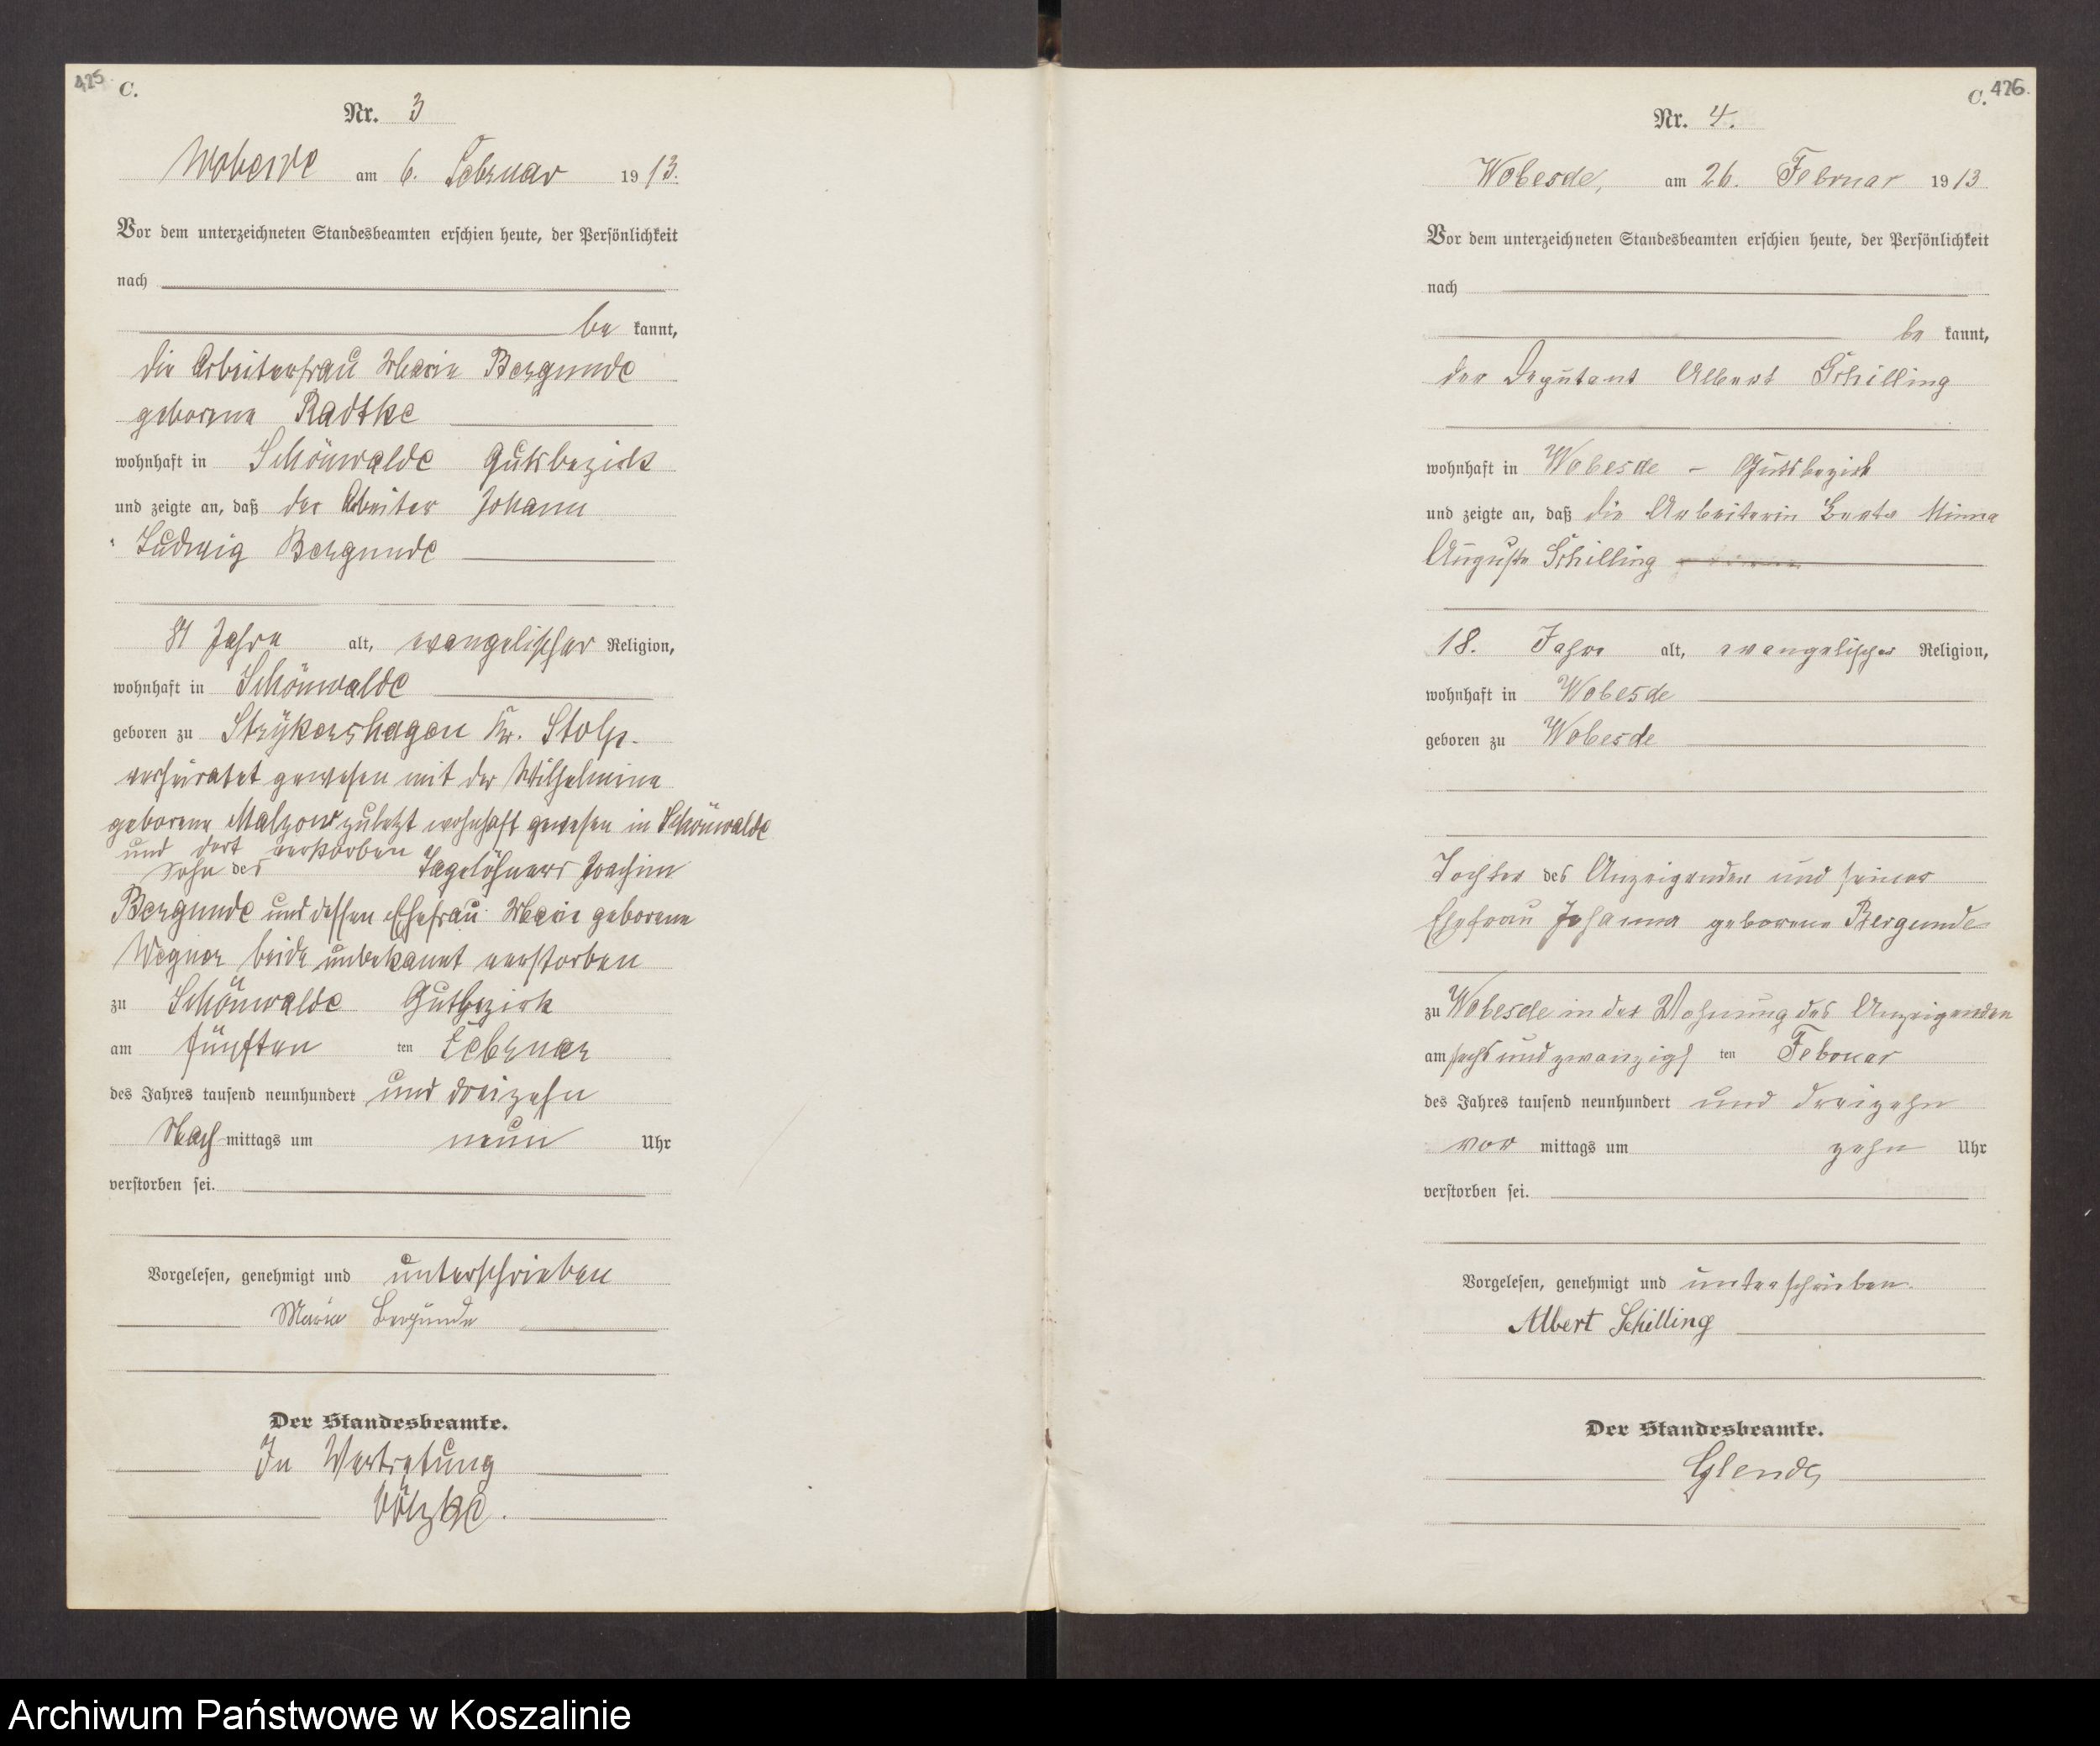 425
C.
Nr. 3
Wobesde am 6. Februar 1913.
Vor dem unterzeichneten Standesbeamten erschien heute, der Persönlichkeit
nach
be kannt,
die Arbeiterfrau Marie Bergunde
geborene Radtke
wohnhaft in Schönwalde Gutsbezirk
und zeigte an, daß der Arbeiter Johann
Ludwig Bergunde
Jahre alt, evangelischer Religion,
wohnhaft in Schönwalde
geboren zu Strykershagen Kr. Stolp.
verheiratet gewesen mit der Wilhelmine
geborene Malzow zuletzt wohnhaft gewesen in Schönwalde
und dort verstorben
Sohn des Tagelöhners Joachim
Bergunde und dessen Ehefrau Marie geborene
Wegner beide unbekannt verstorben
zu Schönwalde Gutbezirk
am fünften ten Februar
des Jahres tausend neunhundert und dreizehn
Nach mittags um neun Uhr
verstorben sei.
Vorgelesen, genehmigt und unterschrieben
Marie Bergunde
Der Standesbeamte.
In Vertretung
C. 426.
Nr. 4.
Wobesde, am 26. Februar 1913
Vor dem unterzeichneten Standesbeamten erschien heute, der Persönlichkeit
nach
be kannt,
der Deputant Albert Schilling
wohnhaft in Wobesde – Gutsbezirk
und zeigte an, daß die Arbeiterin Berta Minna
Auguste Schilling
18. Jahre alt, evangelischer Religion,
wohnhaft in Wobesde
geboren zu Wobesde
Tochter des Anzeigenden und seiner
Ehefrau Johanna geborene Bergunde
zu Wobesde in der Wohnung des Anzeigenden
am sechsundzwanzigs ten Februar
des Jahres tausend neunhundert und dreizehn
vor mittags um zehn Uhr
verstorben sei.
Vorgelesen, genehmigt und unterschrieben.
Albert Schilling
Der Standesbeamte.
Archiwum Państwowe w Koszalinie